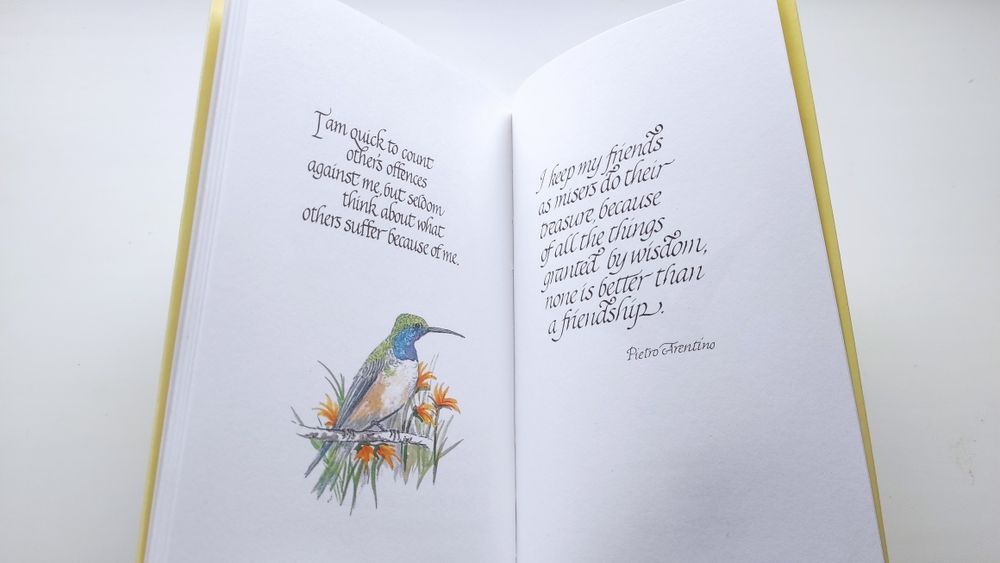 I am quick to count
other's offences
against me, but seldom
think about what
others suffer because of me.
I keep my friends
as misers do their
treasure, because
of all the things
granted by wisdom,
none is better than
a friendship.
Pietro Arentino